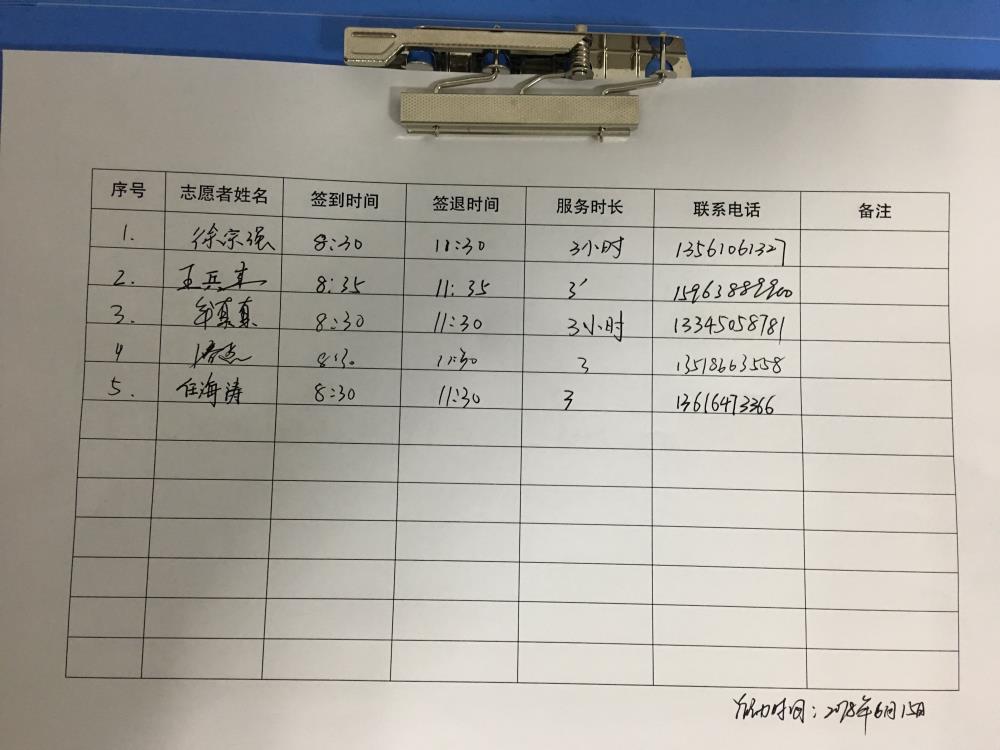 序号 志愿者姓名 签到时间 签退时间 服务时长 联系电话 备注
1. 徐宗强 8:30 11:30 3小时 13561061327
2. 王兵 8:35 11:35 3' 15963889900
3. 牟真真 8:30 11:30 3小时 13345058781
4 8:30 11:30 3 13518663558
5. 任海涛 8:30 11:30 3 13616473366
活动时间:2018年6月15日